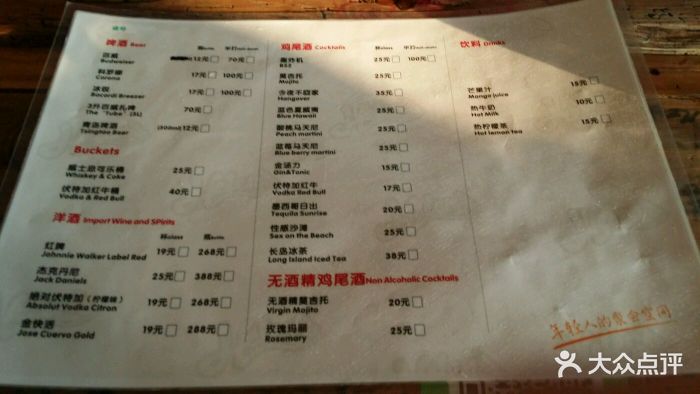 啤酒 Beer 瓶Bottle 半打Half-dozen
百威 12元 70元
Budweiser
科罗娜 17元 100元
Corona
冰锐 17元 100元
Bacardi Breezer
3升百威扎啤 70元
The "Tube" (3L)
青岛啤酒 12元
Tsingtao Beer
Buckets
威士忌可乐桶 25元
Whiskey & Coke
伏特加红牛桶 40元
Vodka & Red Bull
洋酒 Import Wine and SPirits 杯Glass 瓶Bottle
红牌 19元 268元
Johnnie Walker Label Red
杰克丹尼 25元 388元
Jack Daniels
绝对伏特加(柠檬味) 19元 268元
Absolut Vodka Citron
金快活 19元 288元
Jose Cuervo Gold
鸡尾酒 Cocktails 杯Glass 半打Half-dozen
轰炸机 25元 100元
B52
莫吉托 25元
Mojito
今夜不回家 35元
Hangover
蓝色夏威夷 25元
Blue Hawaii
酸桃马天尼 25元
Peach martini
蓝莓马天尼 25元
Blue berry martini
金汤力 15元
Gin&Tonic
伏特加红牛 17元
Vodka Red Bull
墨西哥日出 20元
Tequila Sunrise
性感沙滩 25元
Sex on the Beach
长岛冰茶 38元
Long Island Iced Tea
无酒精鸡尾酒 Non Alcoholic Cocktails
无酒精莫吉托 20元
Virgin Mojito
玫瑰玛丽 25元
Rosemary
饮料 Drinks
芒果汁 15元
Mango juice
热牛奶 10元
Hot Milk
热柠檬茶 15元
Hot lemon tea
年轻人的聚会空间
大众点评